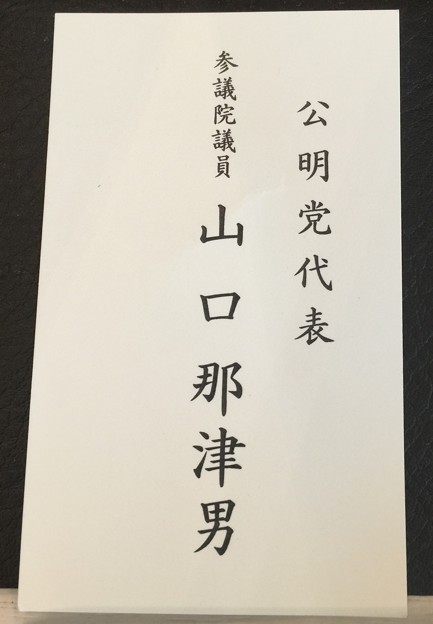 公明党代表
参議院議員 山口那津男